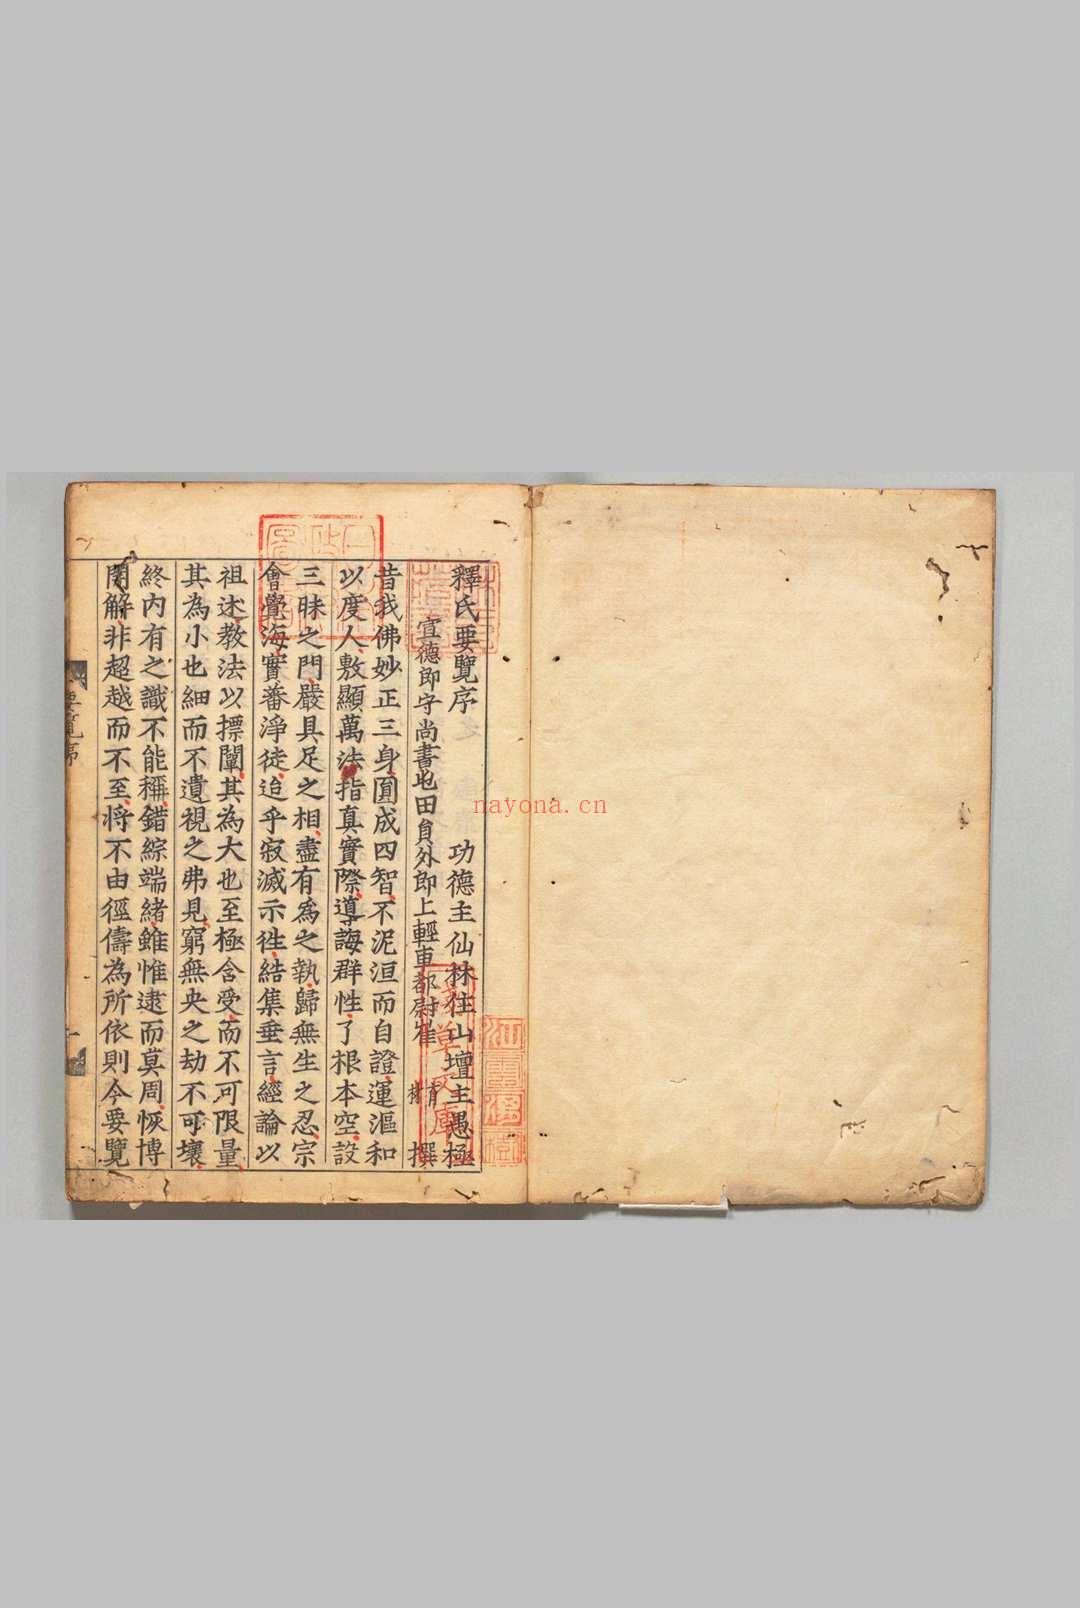 釋氏要覽序 功德主仙林住山壇主愚極
宣德郎守尚書屯田員外郎上輕車都尉崔 育林 撰
昔我佛妙正三身圓成四智不泥洹而自證運漚和
以度人敷顯萬法指真實際導誨群性了根本空設
三昧之門嚴具足之相盡有為之執歸無生之忍宗
會覺海實蕃淨徒迨乎寂滅示徃結集垂言經論以
祖述教法以摽闡其為大也至極含受而不可限量
其為小也細而不遺視之弗見窮無央之劫不可壞
終內有之識不能稱錯綜端緒雖惟逮而莫周恢博
開解非超越而不至將不由徑儔為所依則今要覽
要覽序
nayona.cn